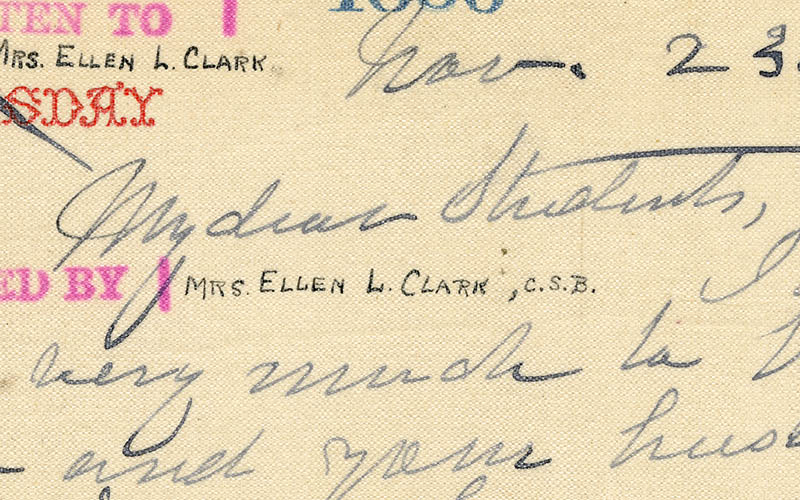 TEN TO
MRS. ELLEN L. CLARK
Nov. 23.
SDAY
My dear Students,
ED BY MRS. ELLEN L. CLARK, C.S.B.
I
very much to
and your